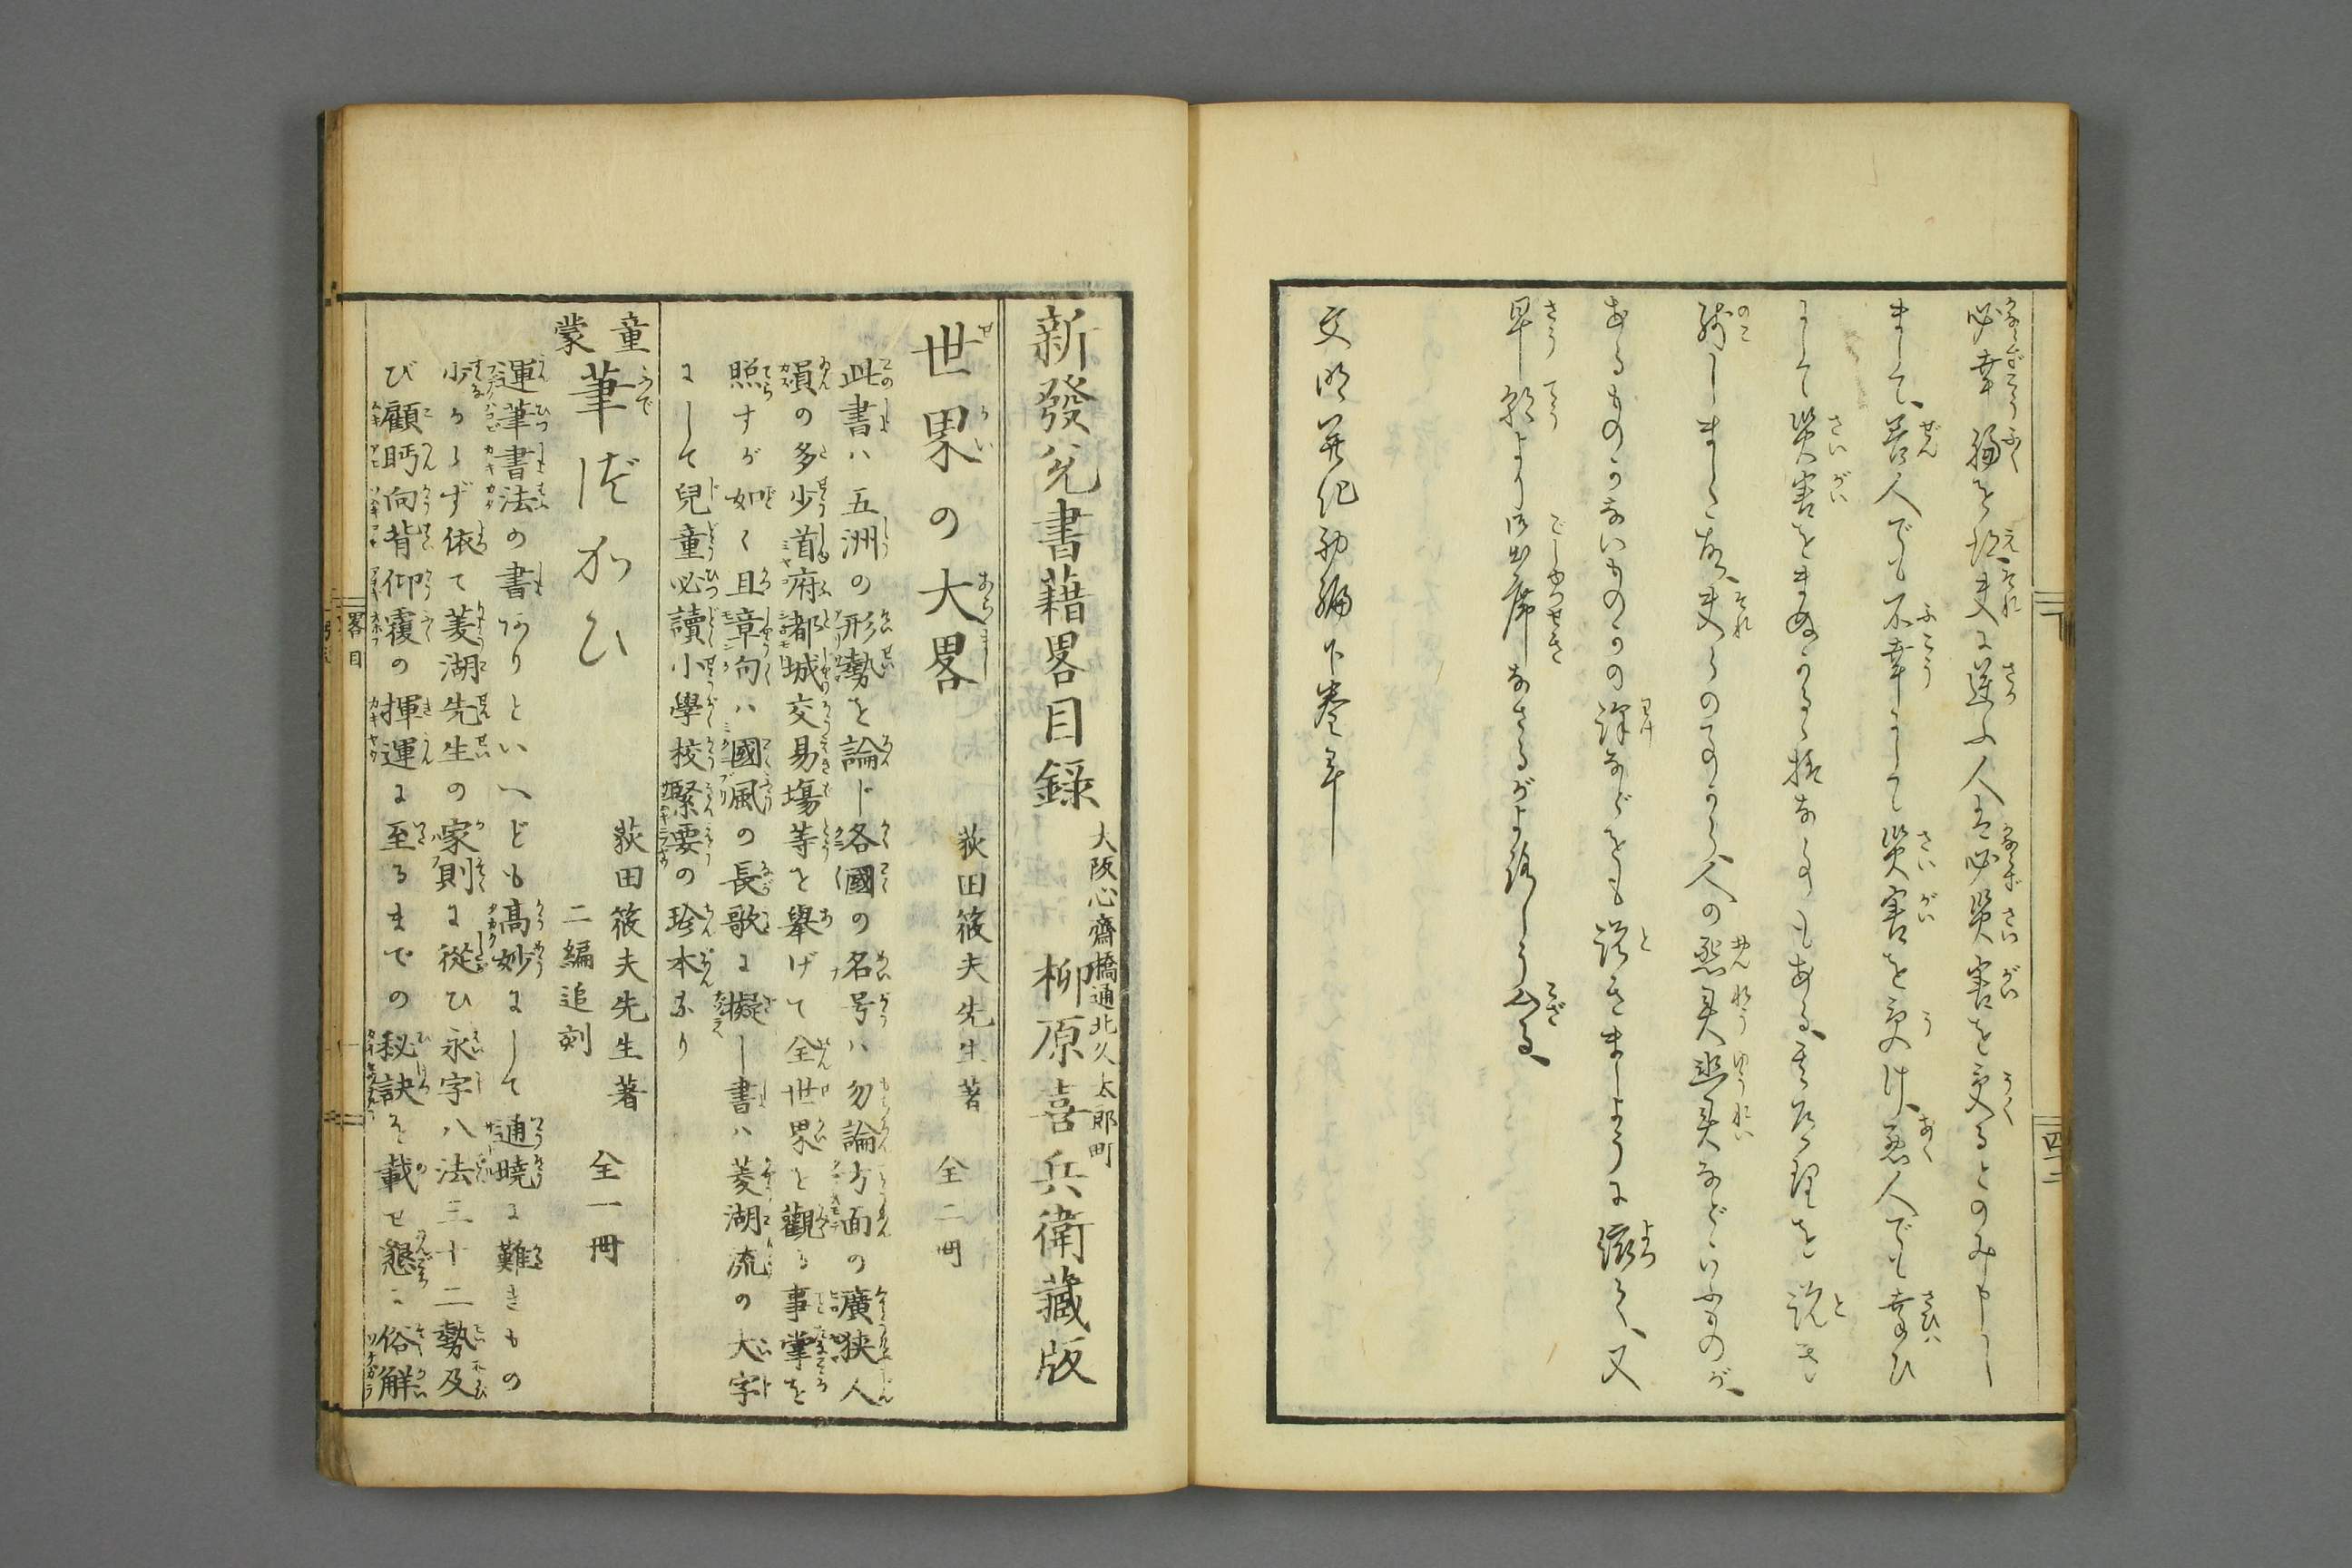 必幸福を得夫に逆ふ人は必災害を受るとのみ申し
まして、善人でも不幸にして災害を受け、悪人でも幸ひ
にして災害をまぬかるゝ抔なる事もある、其道理を説き
残しましたが、夫らの事から、人の怨靈幽霊などいふものが、
あるものかないものかの譯などをも説きましように依て、又
早朝より御出席なさるがよろしう厶る、
文明開化初編下巻畢
下
四十二
新發兌書藉畧目録
大阪心齋橋通北久太郎町
柳原喜兵衛藏版
世界の大畧
荻田筱夫先生著
全二冊
此書ハ五洲の形勢を論じ各國の名号ハ勿論方面の廣狭人
員の多少首府都城交易場等を擧げて全世界を觀る事掌を
照すが如く且章句ハ國風の長歌に擬し書ハ菱湖流の大字
にして兒童必讀小學校緊要の珍本なり
童蒙筆づかひ
荻田筱夫先生著
全一冊
二編追刻
運筆書法の書ありといへども高妙にして通曉に難きもの
少からず依て菱湖先生の家則に從ひ永字八法三十二勢及
び顧眄向背仰覆の揮運に至るまでの秘訣を載せ懇に俗解
畧目